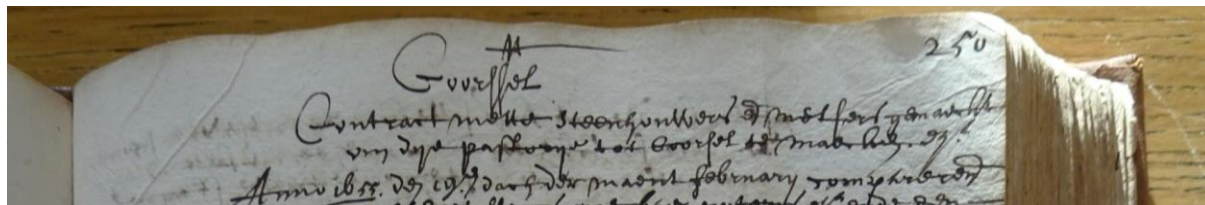 250
Goorssel
Contract mette steenhouwers en metsers gemaeckt
om dye pastorye tot Goorsel te maecken. etc.
Anno 1655. den 19. dach der maent february compareren